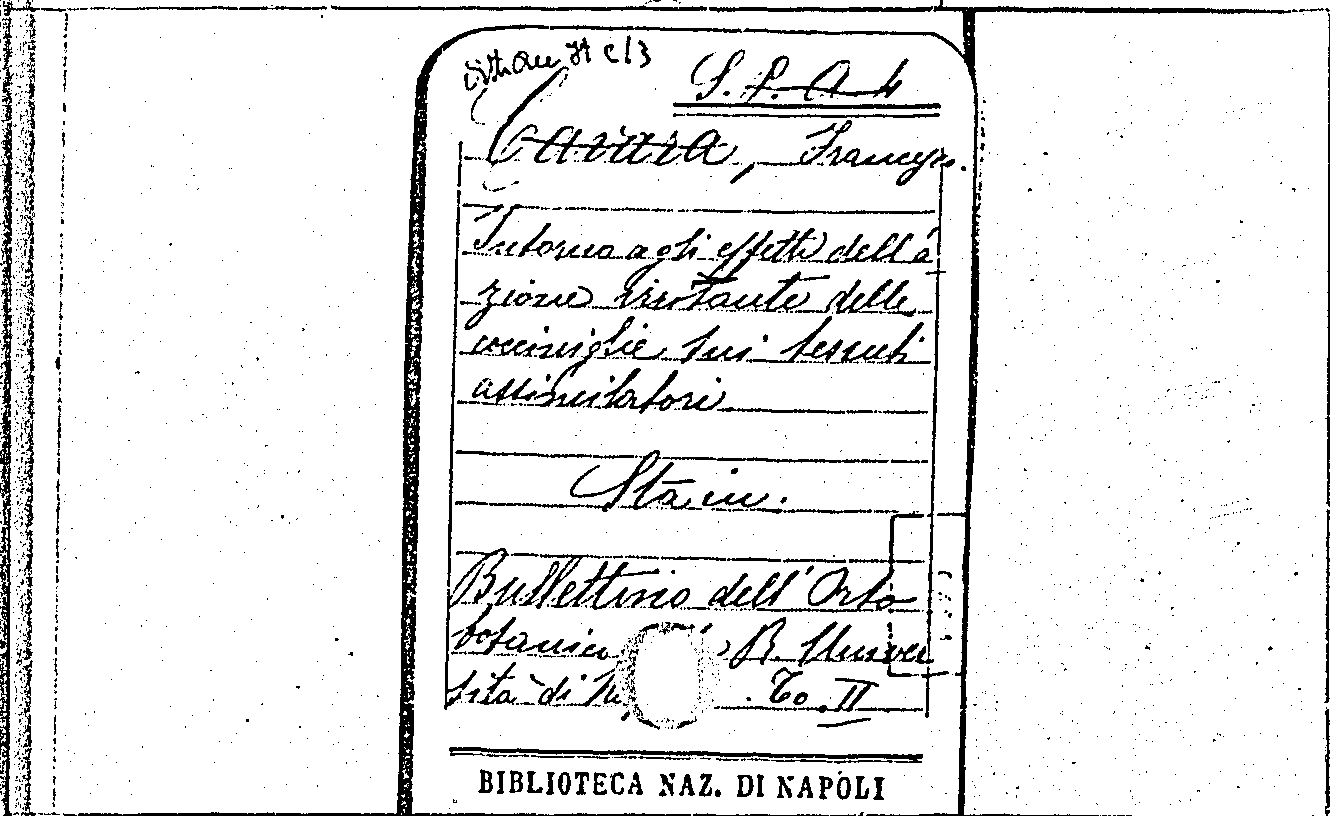 S. P. A 4
Cavara, Francesco.
Intorno agli effetti dell'a
zione irritante delle
cocciniglie sui tessuti
assimilatori
Sta in:
Bullettino dell'Orto
botanico R. Univer
sità di To. II
BIBLIOTECA NAZ. DI NAPOLI